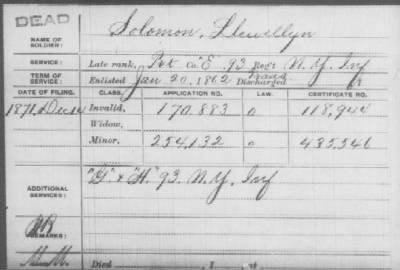 DEAD
NAME OF SOLDIER: Solomon, Llewellyn
SERVICE: Late rank, Pvt Co. "E", 93 Reg't N.Y. Inf
TERM OF SERVICE: Enlisted Jan 20, 1862 Discharged
DATE OF FILING. CLASS. APPLICATION NO. LAW. CERTIFICATE NO.
1871, Dec 14 Invalid, 170.883 o 118,944
Widow,
Minor, 254,132 o 435,546
ADDITIONAL SERVICES: "G" & "H" 93. N.Y. Inf
REMARKS:
Died , 1 , at